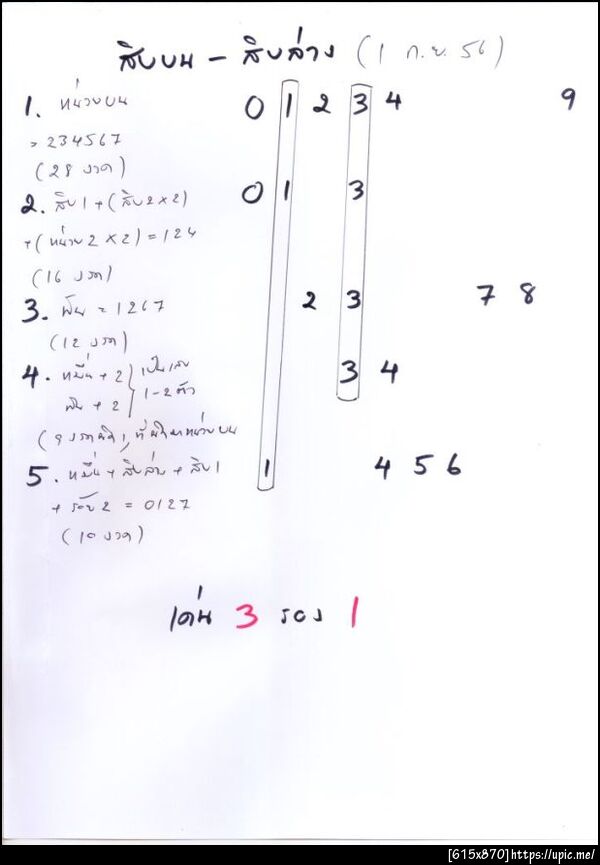 สิบบน - สิบล่าง (1 ก.ย. 56)
1. หน่วยบน 0 1 2 3 4 9
= 234567
(28 งวด)
2. สิบ1 + (สิบ2 x 2) 0 1 3
+ (หน่วย 2 x 2) = 124
(16 งวด)
3. พัน = 1267 2 3 7 8
(12 งวด)
4. หมื่น + 2 } เป็นเลข 3 4
พัน + 2 } 1-2 ตัว
(9 งวด
5. หมื่น + สิบล่าง + สิบ1 1 4 5 6
+ ร้อย2 = 0127
(10 งวด)
เด่น 3 รอง 1
[615x870]https://upic.me/